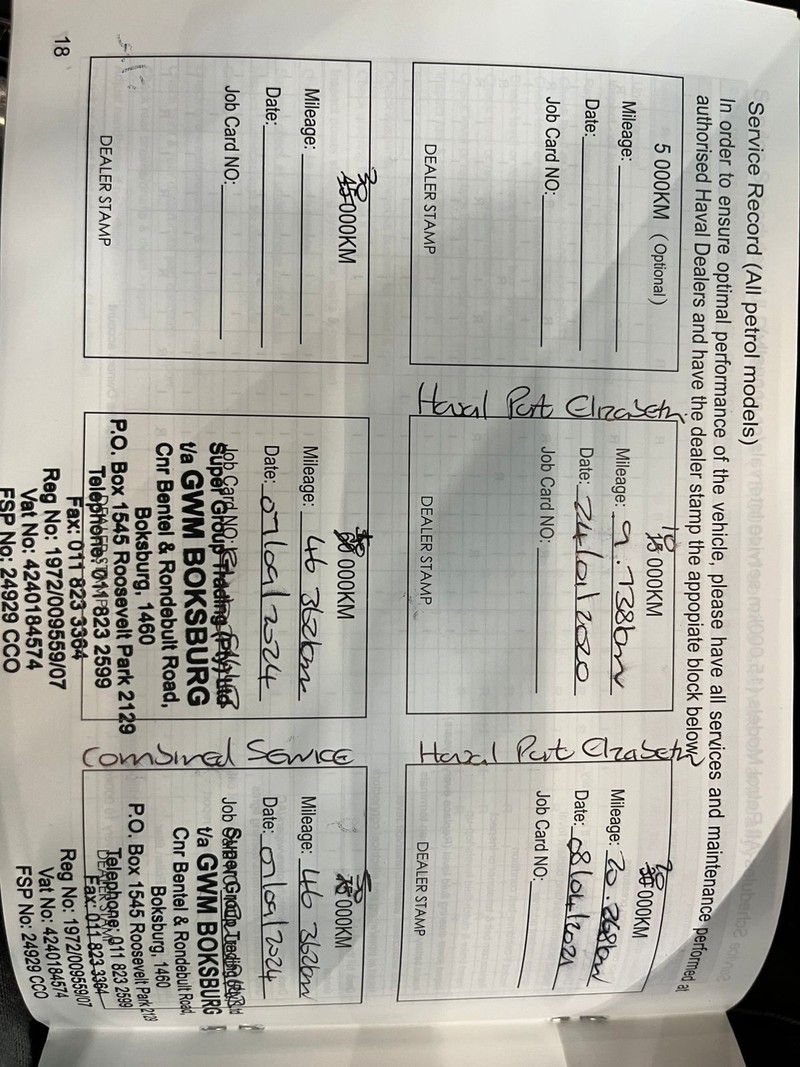 Service Record (All petrol models)
In order to ensure optimal performance of the vehicle, please have all services and maintenance performed at
authorised Haval Dealers and have the dealer stamp the appopiate block below.
5 000KM (Optional)
Mileage:
Date:
Job Card NO:
DEALER STAMP
Haval Port Elizabeth
10
15 000KM
Mileage: 9.738km
Date: 24/01/2020
Job Card NO:
DEALER STAMP
Haval Port Elizabeth
20
30 000KM
Mileage: 20.268km
Date: 08/04/2021
Job Card NO:
DEALER STAMP
30
45 000KM
Mileage:
Date:
Job Card NO:
DEALER STAMP
40
60 000KM
Mileage: 46 362km
Date: 07/09/2024
Job Card NO:
Super Group Trading (Pty) Ltd
t/a GWM BOKSBURG
Cnr Bentel & Rondebult Road,
Boksburg, 1460
P.O. Box 1545 Roosevelt Park 2129
DEALER STAMP
Telephone: 011 823 2599
Fax: 011 823 3364
Reg No: 1972/009559/07
Vat No: 4240184574
FSP No: 24929 CCO
Combined Service
50
75 000KM
Mileage: 46 362km
Date: 07/09/2024
Job
Super Group Trading (Pty) Ltd
t/a GWM BOKSBURG
Cnr Bentel & Rondebult Road,
Boksburg, 1460
P.O. Box 1545 Roosevelt Park 2129
Telephone: 011 823 2599
DEALER STAMP
Fax: 011 823 3364
Reg No: 1972/009559/07
Vat No: 4240184574
FSP No: 24929 CCO
18